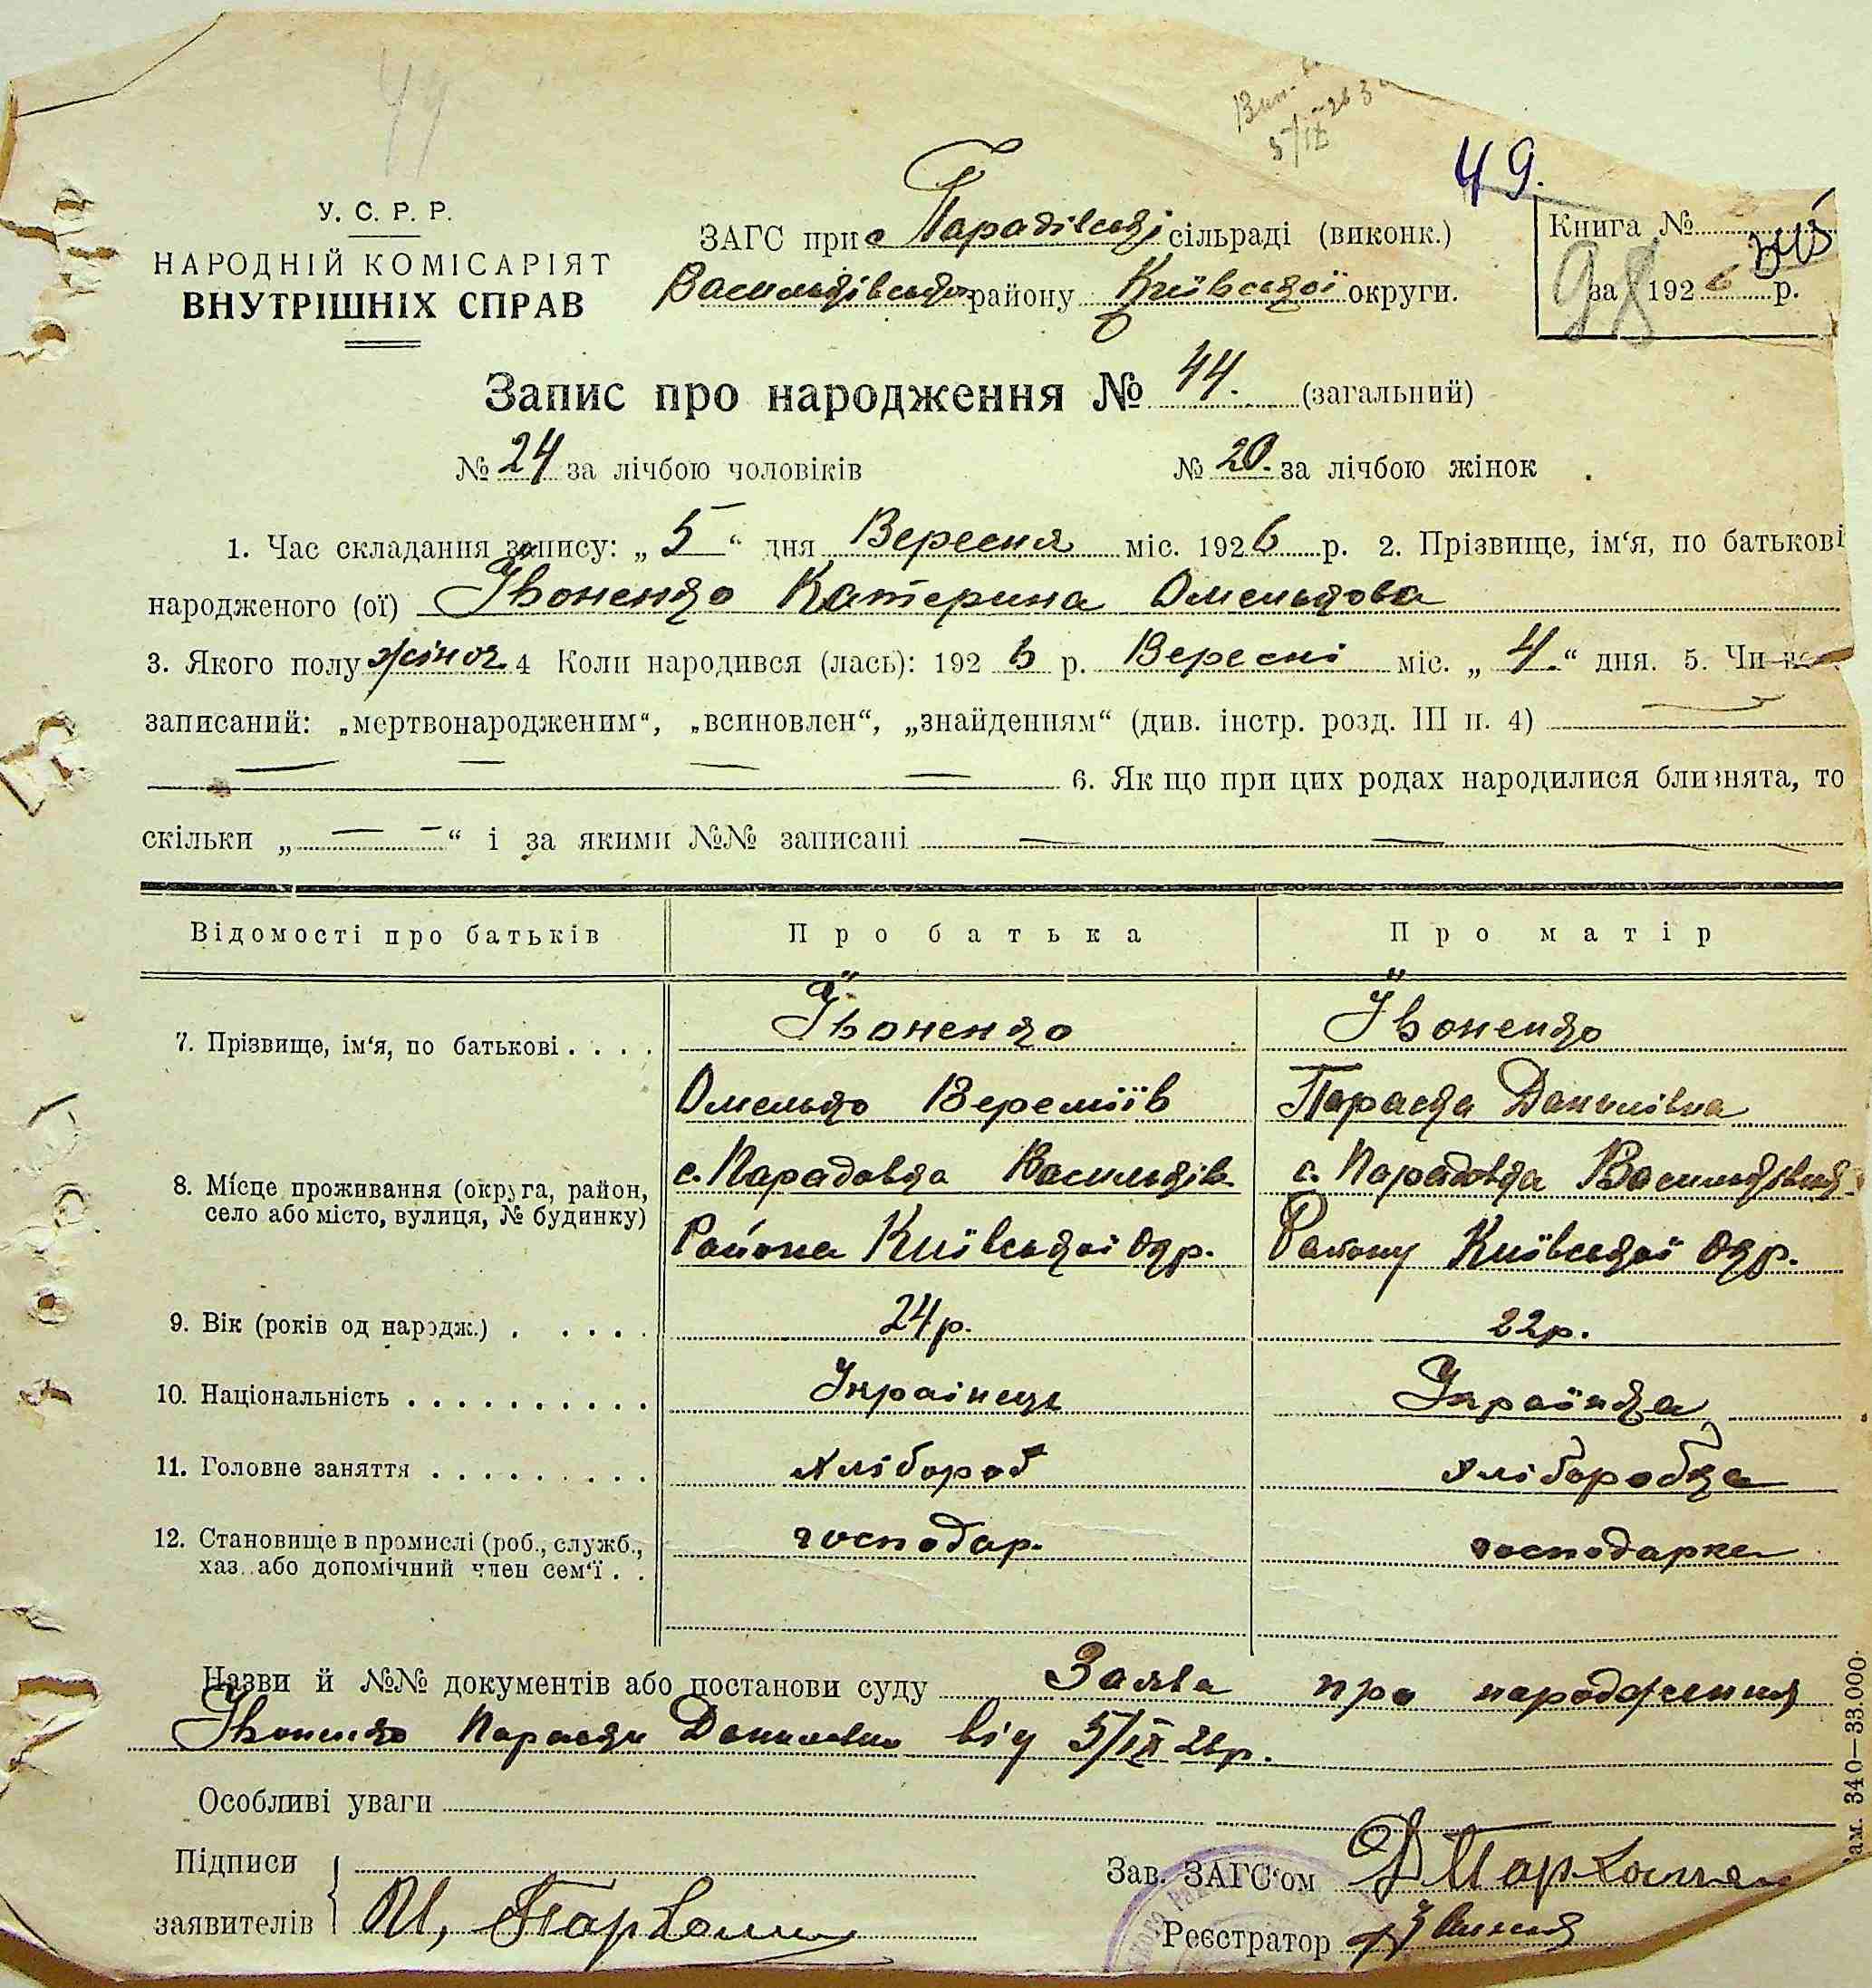 49
49.
У. С. Р. Р.
НАРОДНІЙ КОМІСАРІЯТ
ВНУТРІШНІХ СПРАВ
ЗАГС при с Парадівській сільраді (виконк.)
Васильківського району Київської округи.
Книга №
98
за 1926 р.
Запис про народження № 44. (загальний)
№ 24 за лічбою чоловіків № 20. за лічбою жінок
1. Час складання запису: „ 5 “ дня Вересня міс. 1926 р. 2. Прізвище, ім‘я, по батькові
народженого (ої) Івоненко Катерина Омелькова
3. Якого полу жіноч. 4 Коли народився (лась): 1926 р. Вересні міс. „ 4. “ дня. 5. Чи не
записаний: „мертвонародженим“, „всиновлен“, „знайденням“ (див. інстр. розд. III п. 4) —
— — — — 6. Як що при цих родах народилися близнята, то
скільки „ — — “ і за якими №№ записані — —
Відомості про батьків Про батька Про матір
7. Прізвище, ім‘я, по батькові . . . . Івоненко Івоненко
Омелько Вереміїв Параска Данилівна
8. Місце проживання (округа, район, село або місто, вулиця, № будинку) с. Парадовка Васильків. с. Парадовка Васильківськ.
Района Київської Окр. Району Київської Окр.
9. Вік (років од народж.) . . . . . 24 р. 22 р.
10. Національність . . . . . . . . . . Українець Українка
11. Головне заняття . . . . . . . . . Хлібороб Хліборобка
12. Становище в промислі (роб., служб., хаз. або допомічний член сем‘ї . . господар. господарка
Назви й №№ документів або постанови суду Заява про народження
Івоненко Параски Данилівни від 5/IX 26 р.
Особливі уваги
Підписи
заявителів
Зав. ЗАГС‘ом
Реєстратор
зам. 340—33.000.